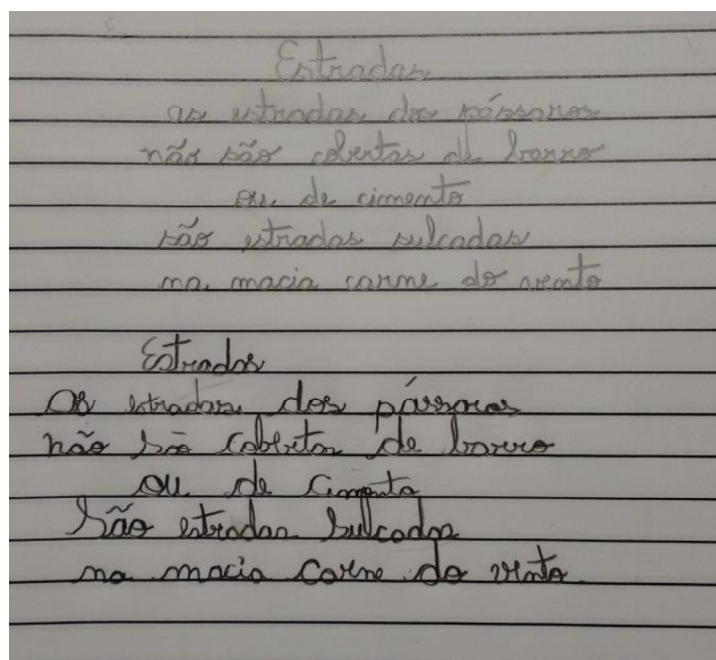 Estradas
as estradas dos pássaros
não são cobertas de barro
ou de cimento
são estradas sulcadas
na macia carne do vento
Estradas
As estradas dos pássaros
não são cobertas de barro
ou de cimento
São estradas sulcadas
na macia carne do vento